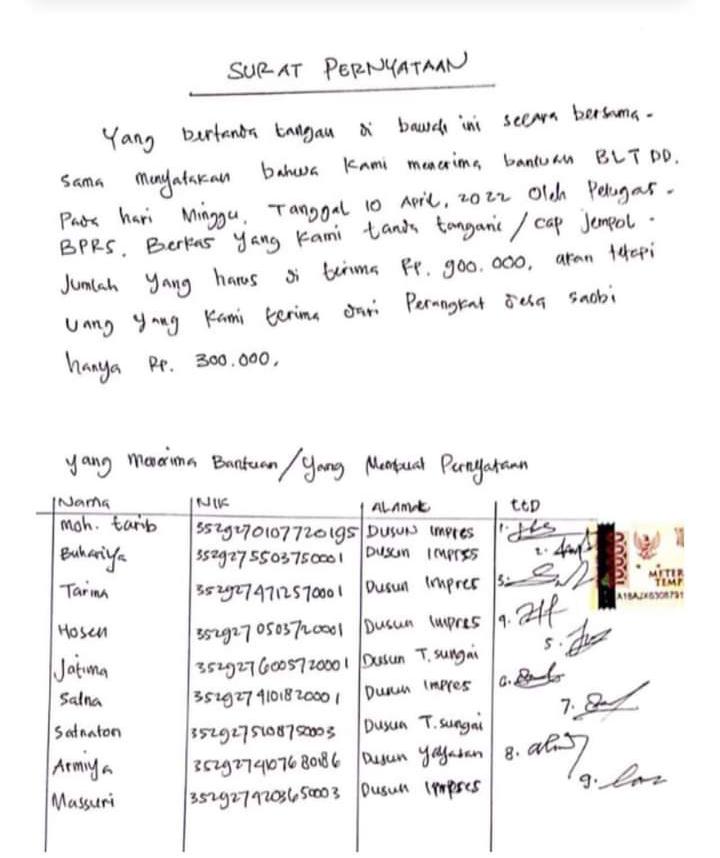 SURAT PERNYATAAN
Yang bertanda tangan di bawah ini secara bersama-
sama menyatakan bahwa kami menerima bantuan BLT DD.
Pada hari Minggu, Tanggal 10 April, 2022 Oleh Petugas-
BPRS. Berkas yang kami tanda tangani / cap jempol.
Jumlah yang harus di terima Rp. 900.000, akan tetapi
uang yang kami terima dari Perangkat desa saobi
hanya Rp. 300.000,
yang Menerima Bantuan/Yang Membuat Pernyataan
Nama NIK ALAMAT TTD
moh. tarib 3529270107720195 DUSUN Impres 1.
Buhariya 3529275503750001 DUSUN IMPRES 2.
Tarima 3529274712570001 Dusun Impres 3.
Hosen 3529270503720001 Dusun Impres 4.
Jatima 3529276005720001 Dusun T. sungai 5.
Satna 3529274101820001 Dusun Impres 6.
Satnaton 3529275108750003 Dusun T. sungai 7.
Armiya 3529274107680186 Dusun Yayasan 8.
Massuri 3529279203650003 Dusun Impres 9.
10000
METER
TEMP